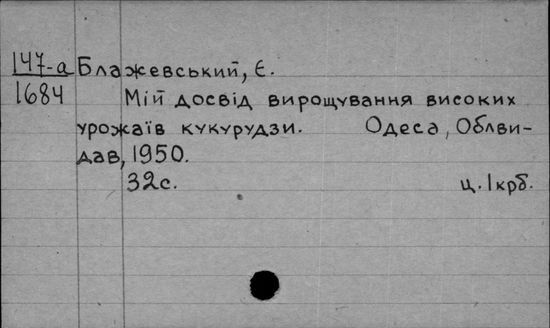 147-а Блажевський, Є.
1684 Мій досвід вирощування високих
урожаїв кукурудзи. Одеса, Облви-
дав, 1950.
32с. ц. 1 крб.